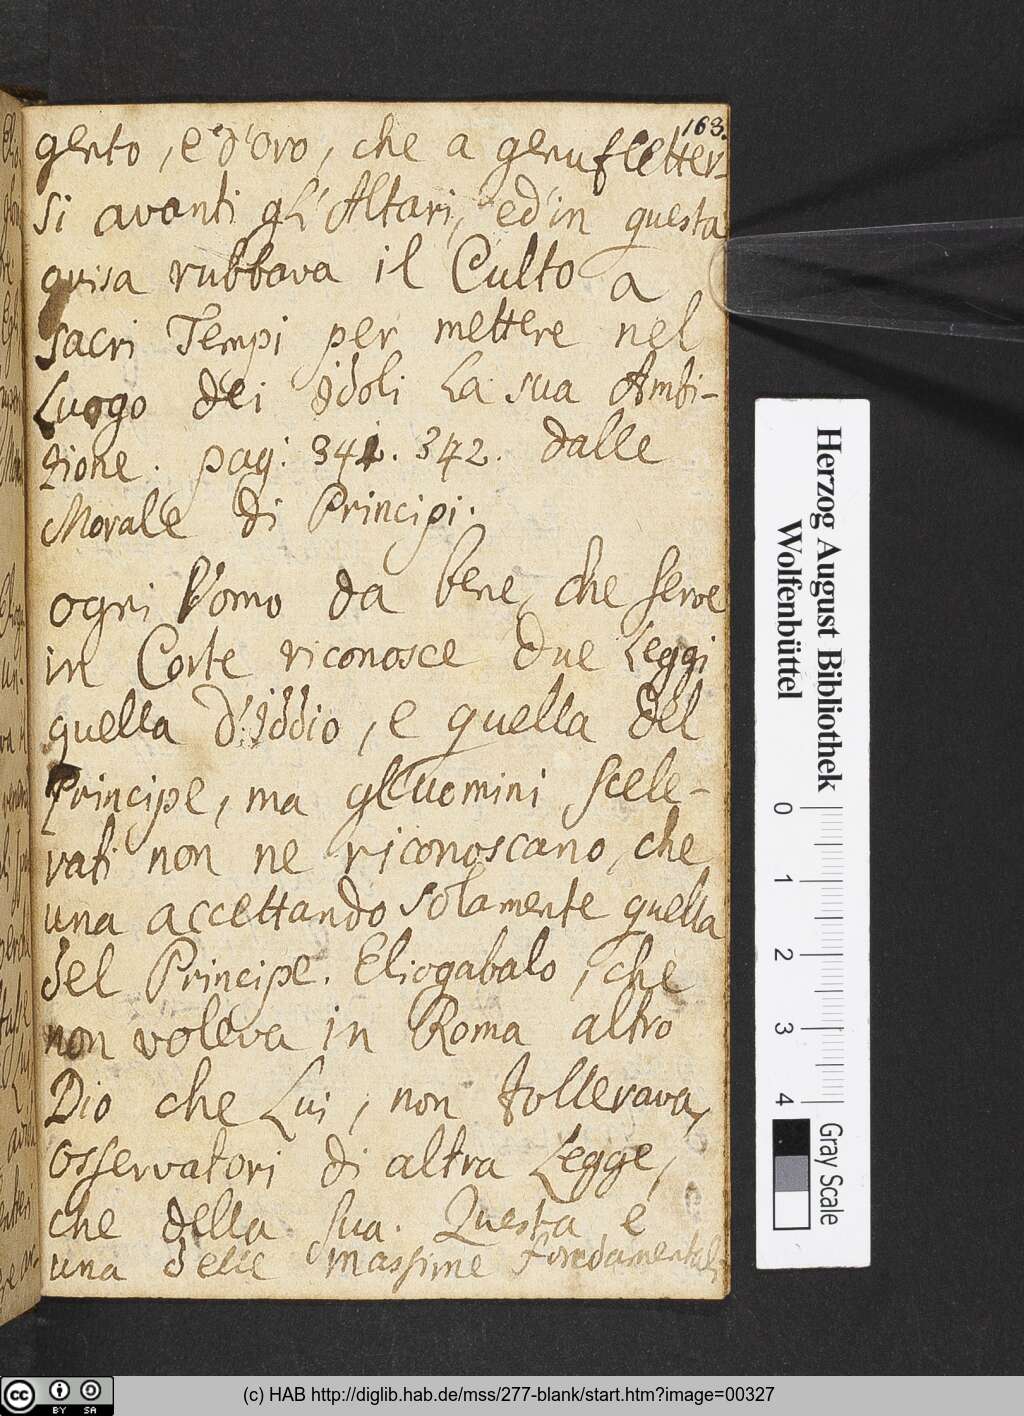 163.
gento, e d'oro, che a genufletter-
si avanti gl'Altari, ed'in questa
guisa rubbava il Culto a
sacri Tempi per mettere nel
Luogo dei Idoli La sua Ambi-
zione. pag: 341. 342. dalle
Morale di Principi.
ogni Uomo da bene, che serve
in Corte riconosce due Leggi
quella d'Iddio, e quella del
Principe, ma gl'uomini scele-
rati non ne riconoscano, che
una accettando solamente quella
del Principe. Eliogabalo, che
non voleva in Roma altro
Dio che Lui, non tollerava,
osservatori di altra Legge,
che della sua. Questa e
una delle massime fondamentali
Herzog August Bibliothek
Wolfenbüttel
0 1 2 3 4
Gray Scale
cc BY SA
(c) HAB http://diglib.hab.de/mss/277-blank/start.htm?image=00327